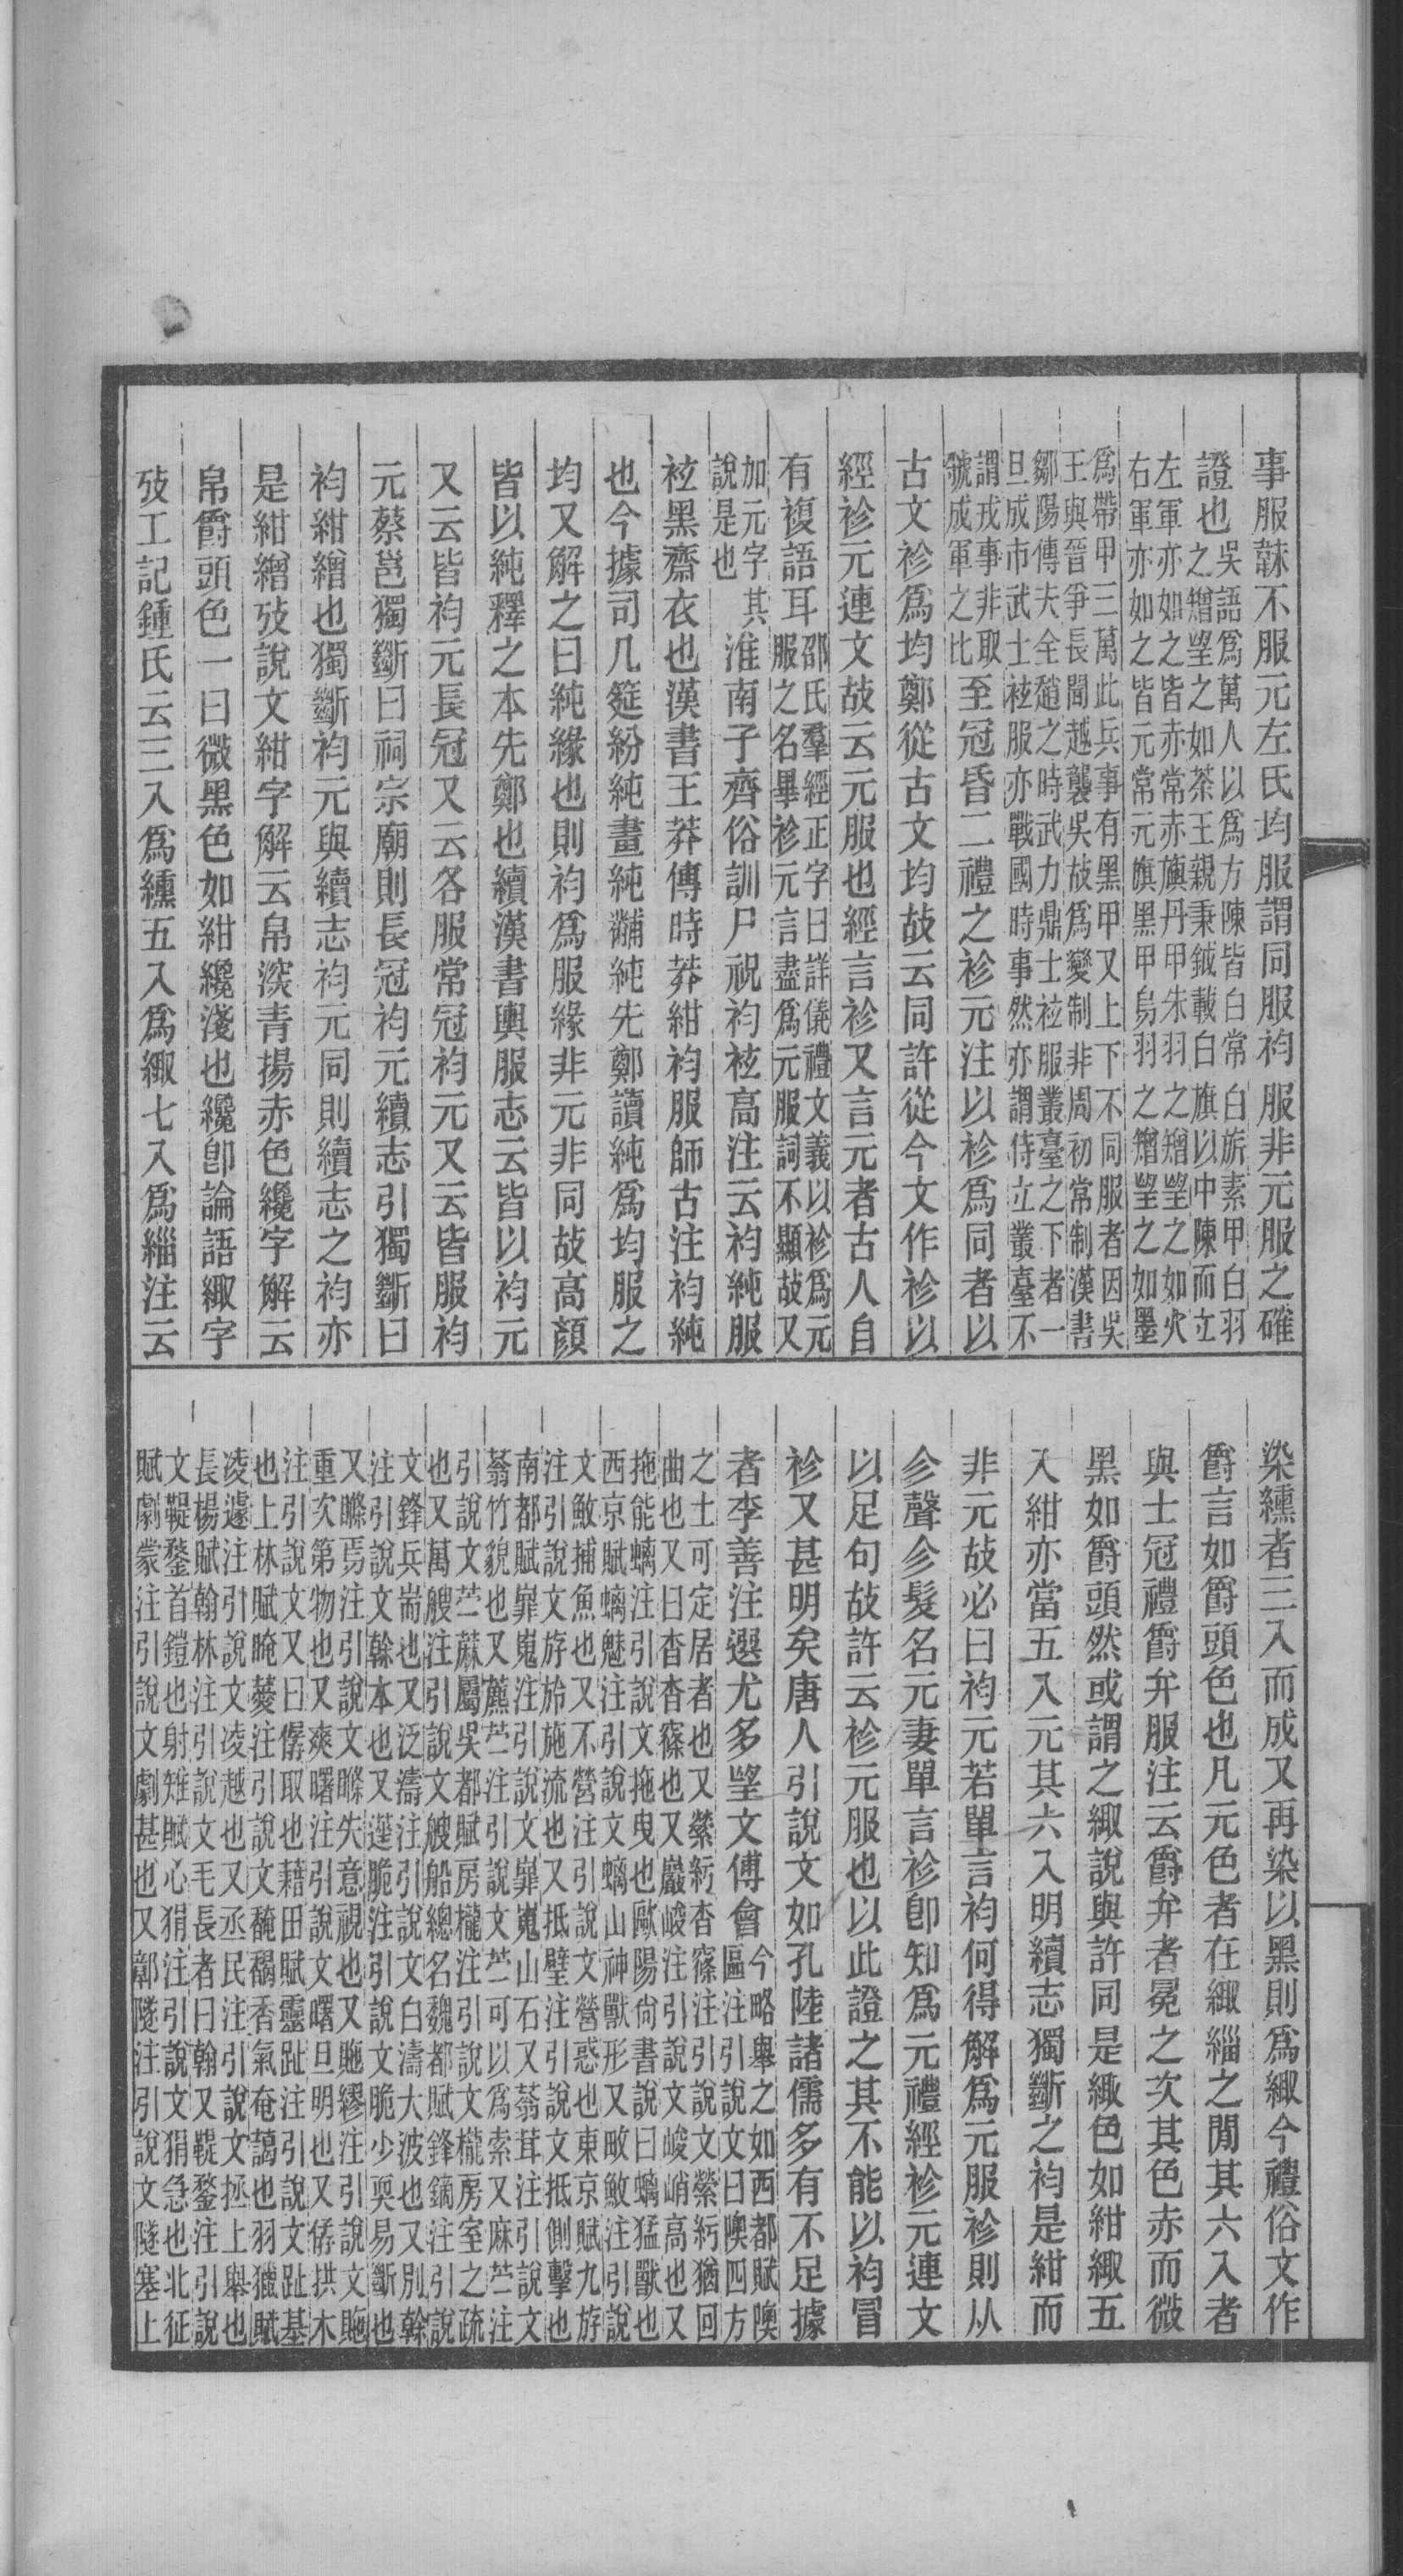 事服韎不服元左氏均服謂同服袀服非元服之確
證也吳語爲萬人以爲方陳皆白常白旂素甲白羽之矰望之如荼王親秉鉞載白旗以中陳而立
左軍亦如之皆赤常赤旟丹甲朱羽之矰望之如火右軍亦如之皆元常元旗黑甲烏羽之矰望之如墨
爲帶甲三萬此兵事有黑甲又上下不同服者因吳王與晉爭長聞越襲吳故爲變制非周初常制漢書
鄒陽傳夫全趙之時武力鼎士袨服叢臺之下者一旦成市武士袨服亦戰國時事然亦謂侍立叢臺不
謂戎事非取虢成軍之比至冠昏二禮之袗元注以袗爲同者以
古文袗爲均鄭從古文均故云同許從今文作袗以
經袗元連文故云元服也經言袗又言元者古人自
有複語耳邵氏羣經正字曰詳儀禮文義以袗爲元服之名畢袗元言盡爲元服詞不顯故又
加元字其說是也淮南子齊俗訓尸祝袀袨高注云袀純服
袨黑齋衣也漢書王莽傳時莽紺袀服師古注袀純
也今據司几筵紛純畫純黼純先鄭讀純爲均服之
均又解之曰純緣也則袀爲服緣非元非同故高顏
皆以純釋之本先鄭也續漢書輿服志云皆以袀元
又云皆袀元長冠又云各服常冠袀元又云皆服袀
元蔡邕獨斷曰祠宗廟則長冠袀元續志引獨斷曰
袀紺繒也獨斷袀元與續志袀元同則續志之袀亦
是紺繒攷說文紺字解云帛深青揚赤色纔字解云
帛爵頭色一曰微黑色如紺纔淺也纔卽論語緅字
攷工記鍾氏云三入爲纁五入爲緅七入爲緇注云
染纁者三入而成又再染以黑則爲緅今禮俗文作
爵言如爵頭色也凡元色者在緅緇之閒其六入者
與士冠禮爵弁服注云爵弁者冕之次其色赤而微
黑如爵頭然或謂之緅說與許同是緅色如紺緅五
入紺亦當五入元其六入明續志獨斷之袀是紺而
非元故必曰袀元若單言袀何得解爲元服袗則从
㐱聲㐱髮名元妻單言袗卽知爲元禮經袗元連文
以足句故許云袗元服也以此證之其不能以袀冒
袗又甚明矣唐人引說文如孔陸諸儒多有不足據
者李善注選尤多望文傅會今略舉之如西都賦隩區注引說文曰隩四方
之土可定居者也又縈紆杳窱注引說文縈紆猶回曲也又曰杳杳窱也又巖峻注引說文峻峭高也又
拖能螭注引說文拖曳也歐陽尙書說曰螭猛獸也西京賦螭魅注引說文螭山神獸形又畋敵注引說
文敵捕魚也又不營注引說文營惑也東京賦九斿注引說文斿旍施流也又抵璧注引說文抵側擊也
南都賦嶵嵬注引說文嶵嵬山石又蓊茸注引說文蓊竹貌也又藨苧注引說文苧可以爲索又麻苧注
引說文苧蔴屬吳都賦房櫳注引說文櫳房室之疏也又萬艘注引說文艘船總名魏都賦鋒鏑注引說
文鋒兵耑也又泛濤注引說文白濤大波也又別榦注引說文榦本也又蓮脆注引說文脆少耎易斷也
又瞭焉注引說文瞭失意視也又貤繆注引說文貤重次第物也又爽曙注引說文曙旦明也又侾拱木
注引說文又曰僝取也藉田賦靈趾注引說文趾基也上林賦晻薆注引說文馣䭇香氣奄藹也羽獵賦
凌遽注引說文凌越也又丞民注引說文拯上舉也長楊賦翰林注引說文毛長者曰翰又鞮鍪注引說
文鞮鍪首鎧也射雉賦心狷注引說文狷急也北征賦劇蒙注引說文劇甚也又鄣隧注引說文隧塞上